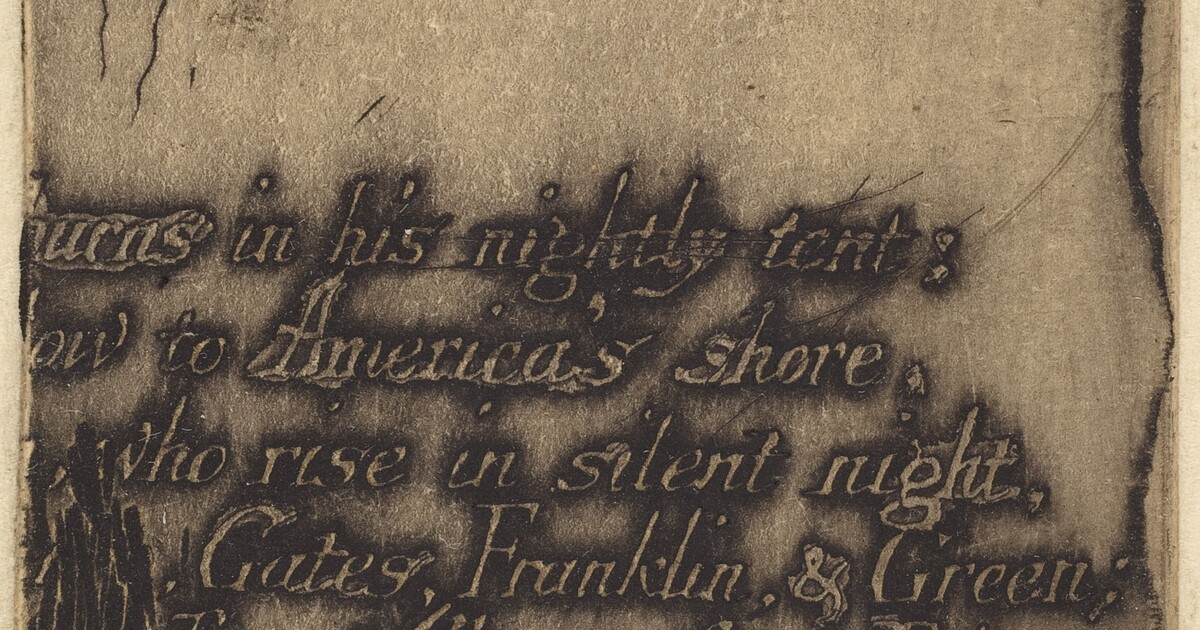 in his nightly tent;
to America's shore,
who rise in silent night,
, Gates, Franklin, & Green;